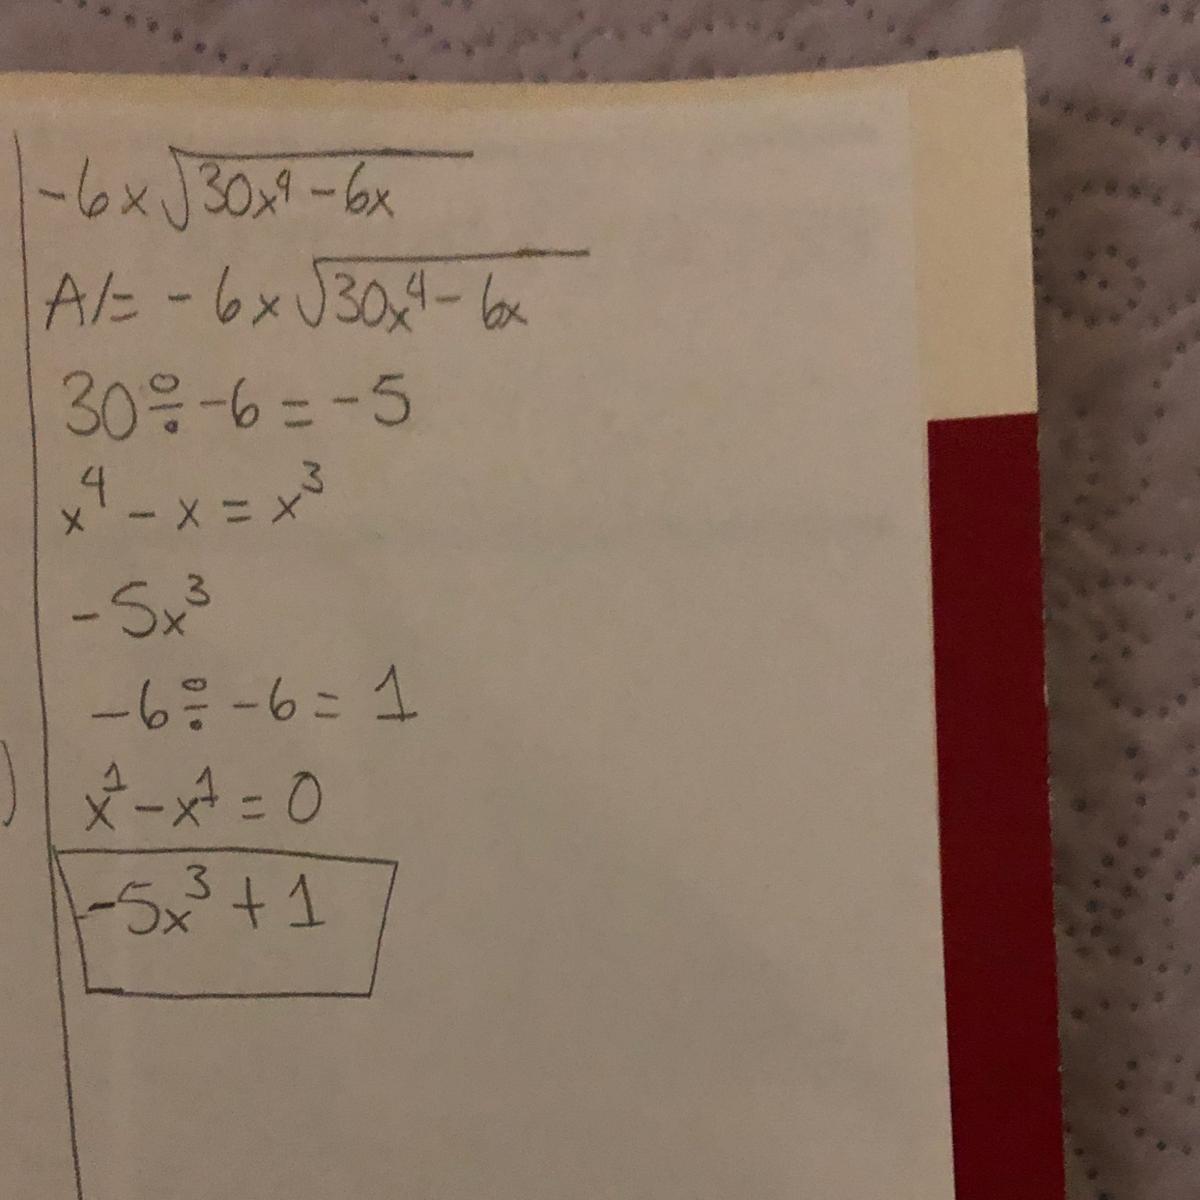 -6x√30x⁴ - 6x
A/= -6x√30x⁴ - 6x
30 ÷ -6 = -5
x⁴ - x = x³
-5x³
-6 ÷ -6 = 1
x¹ - x¹ = 0
-5x³ + 1
)